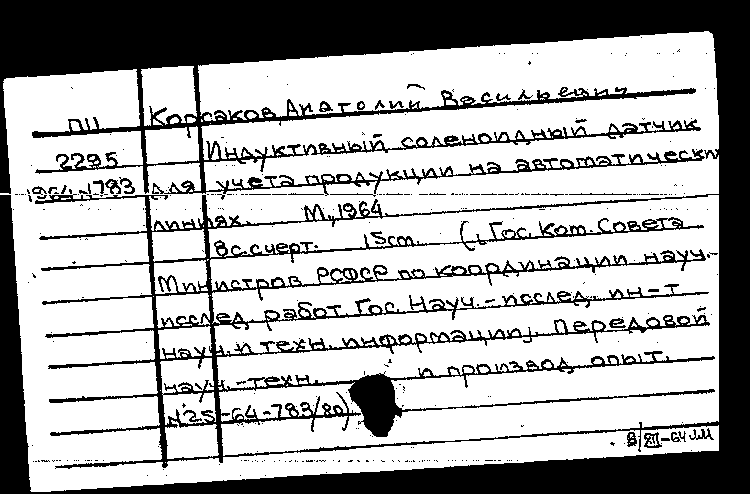 ПII Корсаков, Анатолий Васильевич
2295 Индуктивный соленоидный датчик
1964 N783 для учета продукции на автоматически
линиях. М., 1964.
8с. с черт. 15cm. (Гос. Ком. Совета
Министров РСФСР по координации науч.-
исслед. работ. Гос. Науч.-исслед. ин-т
науч. и техн. информации. Передовой
науч.-техн. и производ. опыт.
N25-64-783/80)